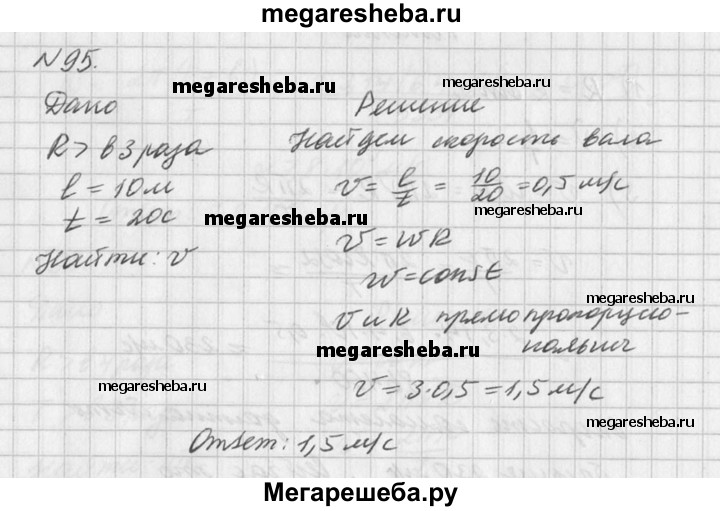 megaresheba.ru
N 95.
Дано
R > в 3 раза
l = 10 м
t = 20с
Найти: v
Решение
Найдем скорость вала
v = l/t = 10/20 = 0,5 м/с
v = wR
w = const
v и R прямо пропорцио-
нальны
v = 3·0,5 = 1,5 м/с
Ответ: 1,5 м/с
megaresheba.ru
megaresheba.ru
megaresheba.ru
megaresheba.ru
megaresheba.ru
megaresheba.ru
megaresheba.ru
megaresheba.ru
Мегарешеба.ру